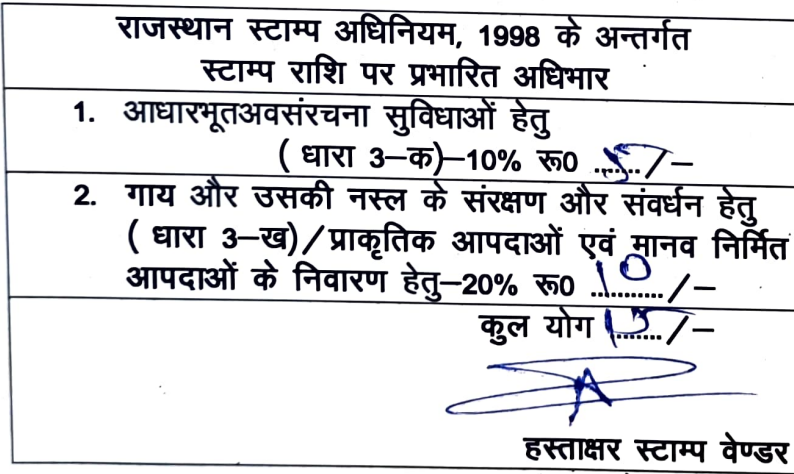 राजस्थान स्टाम्प अधिनियम, 1998 के अन्तर्गत
स्टाम्प राशि पर प्रभारित अधिभार
1. आधारभूतअवसंरचना सुविधाओं हेतु
( धारा 3–क)–10% रू0 ..5.. /–
2. गाय और उसकी नस्ल के संरक्षण और संवर्धन हेतु
( धारा 3–ख) / प्राकृतिक आपदाओं एवं मानव निर्मित
आपदाओं के निवारण हेतु–20% रू0 ..10.. /–
कुल योग ..15.. /–
हस्ताक्षर स्टाम्प वेण्डर